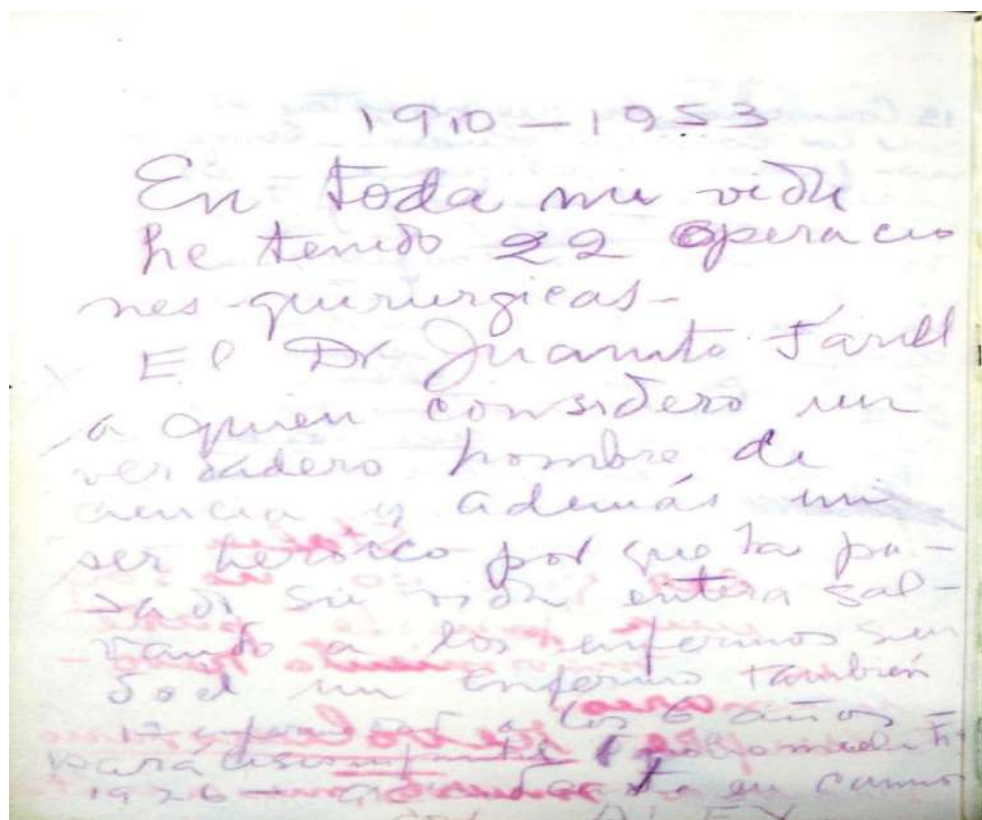 1910 – 1953
En toda mi vida
he tenido 22 operacio
nes quirurgicas –
El Dr Juanito Farill
a quien considero un
verdadero hombre de
ciencia y además un
ser heroico por que ha pa-
sado su vida entera sal-
vando a los enfermos sien
do el un enfermo también
1ª enfermedad a los 6 años –
parálisis infantil (poliomielit
1926 – en camio
con ALEX